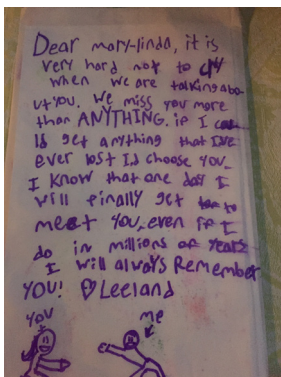 Dear mary-linda, it is
very hard not to cry
when we are talking abo
ut you. We miss you more
than ANYTHING. if I
Id get anything that I've
ever lost I,d choose you.
I know that one day I
will finally get to
meet you, even if I
do in millions of years
I will always Remember
YOU! ♡Leeland
you
me